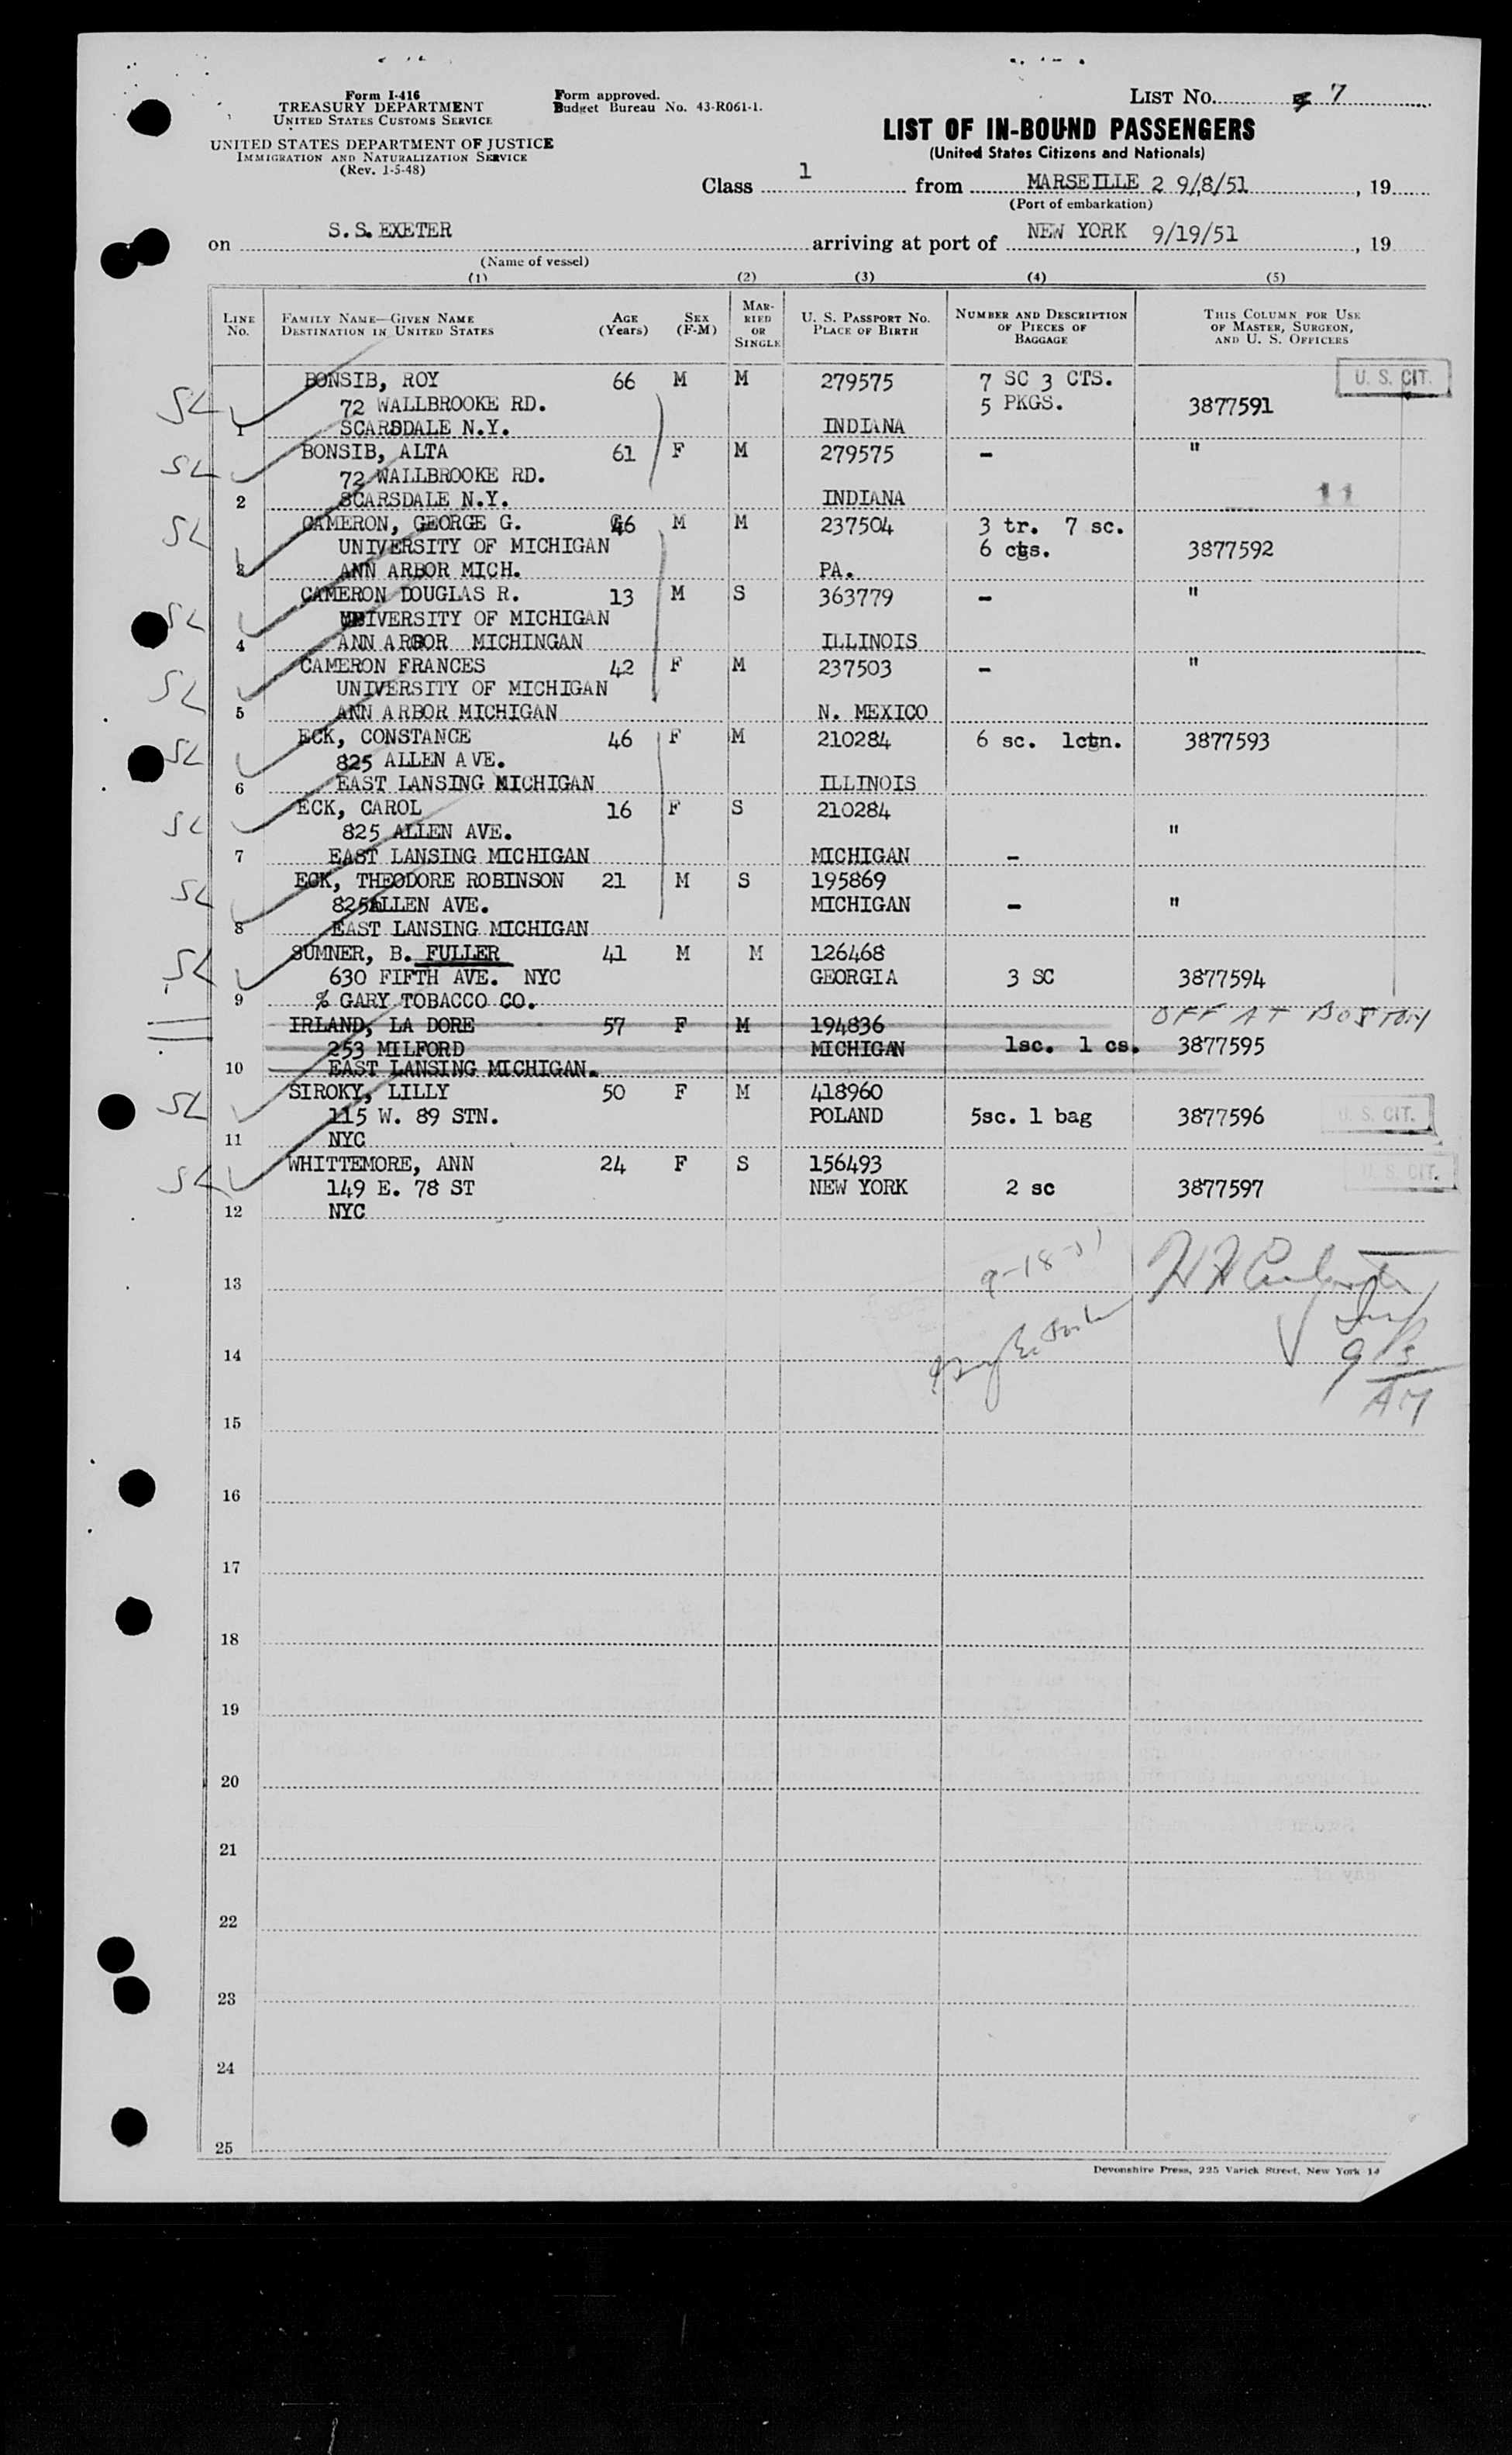 Form I-416
TREASURY DEPARTMENT
UNITED STATES CUSTOMS SERVICE
UNITED STATES DEPARTMENT OF JUSTICE
IMMIGRATION AND NATURALIZATION SERVICE
(Rev. 1-5-48)
Form approved.
Budget Bureau No. 43-R061-1.
LIST NO. 7
LIST OF IN-BOUND PASSENGERS
(United States Citizens and Nationals)
Class 1 from MARSEILLE 2 9/8/51, 19
(Port of embarkation)
on S.S. EXETER arriving at port of NEW YORK 9/19/51, 19
(Name of vessel)
(1) (2) (3) (4) (5)
LINE NO. FAMILY NAME—GIVEN NAME DESTINATION IN UNITED STATES AGE (Years) SEX (F-M) MARRIED OR SINGLE U. S. PASSPORT NO. PLACE OF BIRTH NUMBER AND DESCRIPTION OF PIECES OF BAGGAGE THIS COLUMN FOR USE OF MASTER, SURGEON, AND U. S. OFFICERS
BONSIB, ROY 66 M M 279575 7 SC 3 CTS. U. S. CIT.
SL 72 WALLBROOKE RD. 5 PKGS. 3877591
1 SCARSDALE N.Y. INDIANA
BONSIB, ALTA 61 F M 279575 - "
SL 72 WALLBROOKE RD.
2 SCARSDALE N.Y. INDIANA 11
CAMERON, GEORGE G. 46 M M 237504 3 tr. 7 sc.
SL UNIVERSITY OF MICHIGAN 6 cts. 3877592
3 ANN ARBOR MICH. PA.
CAMERON DOUGLAS R. 13 M S 363779 - "
SL UNIVERSITY OF MICHIGAN
4 ANN ARBOR MICHINGAN ILLINOIS
CAMERON FRANCES 42 F M 237503 - "
SL UNIVERSITY OF MICHIGAN
5 ANN ARBOR MICHIGAN N. MEXICO
ECK, CONSTANCE 46 F M 210284 6 sc. 1ctn. 3877593
SL 825 ALLEN AVE.
6 EAST LANSING MICHIGAN ILLINOIS
ECK, CAROL 16 F S 210284
SL 825 ALLEN AVE. "
7 EAST LANSING MICHIGAN MICHIGAN -
ECK, THEODORE ROBINSON 21 M S 195869
SL 825 ALLEN AVE. MICHIGAN - "
8 EAST LANSING MICHIGAN
SUMNER, B. FULLER 41 M M 126468
SL 630 FIFTH AVE. NYC GEORGIA 3 SC 3877594
9 % GARY TOBACCO CO.
IRLAND, LA DORE 57 F M 194836 OFF AT BOSTON
253 MILFORD MICHIGAN 1sc. 1 cs. 3877595
10 EAST LANSING MICHIGAN.
SIROKY, LILLY 50 F M 418960
SL 115 W. 89 STN. POLAND 5sc. 1 bag 3877596 U. S. CIT.
11 NYC
WHITTEMORE, ANN 24 F S 156493
SL 149 E. 78 ST NEW YORK 2 sc 3877597 U. S. CIT.
12 NYC
9-18-51
13
14
AM
15
16
17
18
19
20
21
22
23
24
25
Devonshire Press, 225 Varick Street, New York 14